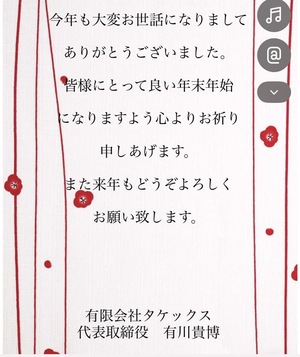 今年も大変お世話になりまして
ありがとうございました。
皆様にとって良い年末年始
になりますよう心よりお祈り
申しあげます。
また来年もどうぞよろしく
お願い致します。
有限会社タケックス
代表取締役　有川貴博